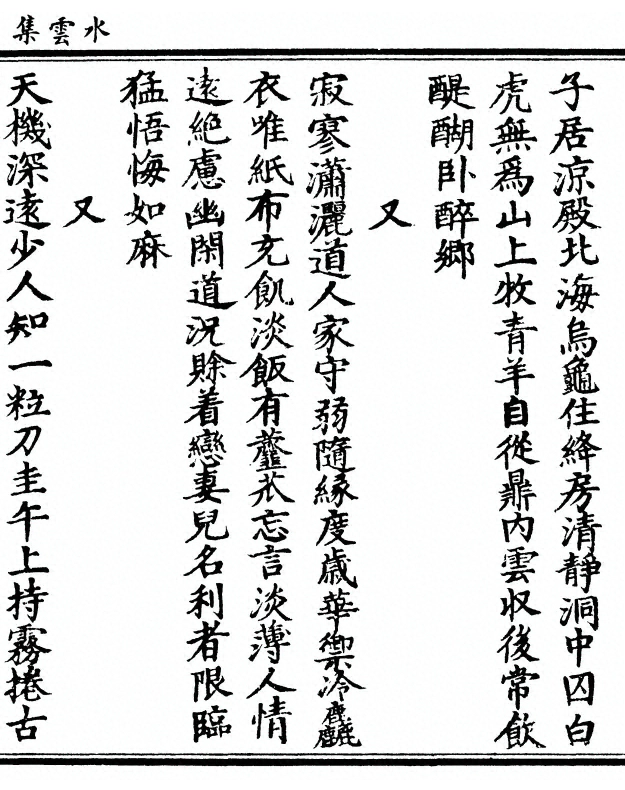 水雲集
子居涼殿北海烏龜住絳房清靜洞中囚白
虎無爲山上牧青羊自從鼎内雲収後常飲
醍醐卧醉鄉
又
寂寥瀟灑道人家守弱隨緣度歲華禦冷麤
衣唯紙布充飢淡飯有虀苽忘言淡薄人情
遠絶慮幽閑道况賒着戀妻兒名利者限臨
猛悟悔如麻
又
天機深遠少人知一粒刀圭午上持霧捲古